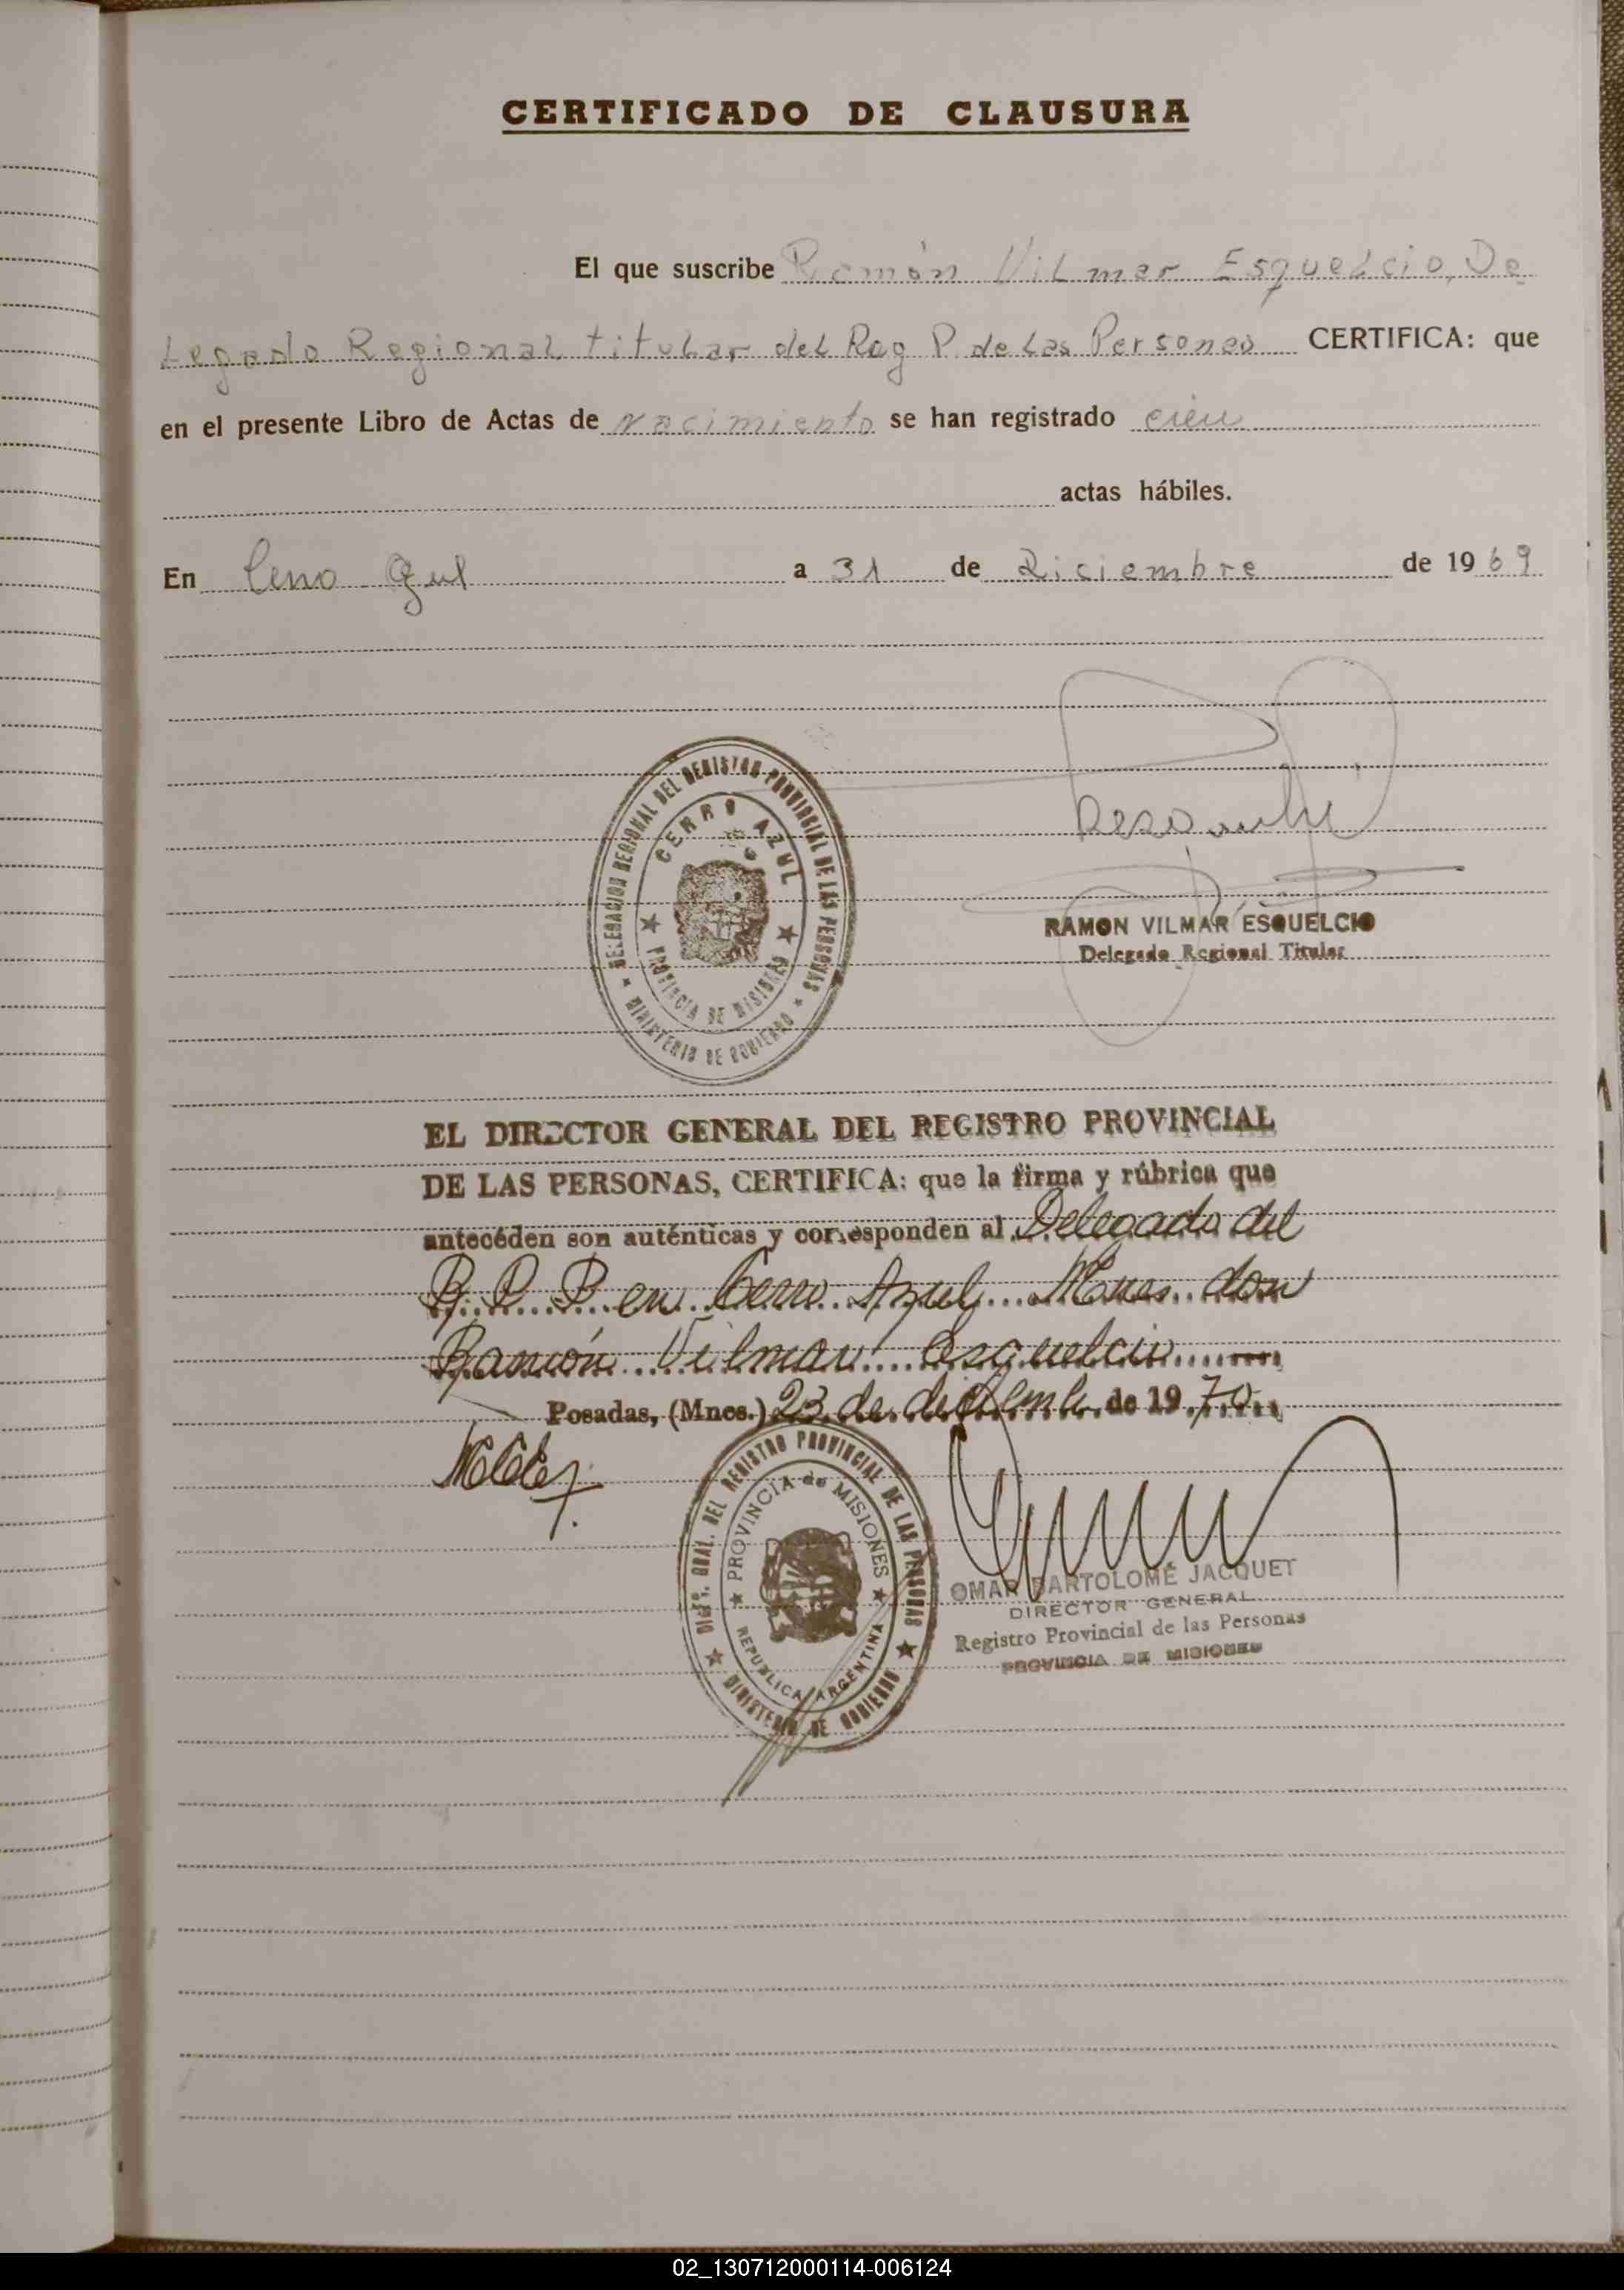 CERTIFICADO DE CLAUSURA
El que suscribe Ramón Vilmar Esquelcio, De
Legado Regional titular del Reg P. de Las Personas CERTIFICA: que
en el presente Libro de Actas de Nacimiento se han registrado cien
actas hábiles.
En Cerro Azul a 31 de Diciembre de 1969
DELEGACION REGIONAL DEL REGISTRO PROVINCIAL DE LAS PERSONAS
CERRO AZUL
PROVINCIA DE MISIONES
MINISTERIO DE GOBIERNO
RAMON VILMAR ESQUELCIO
Delegado Regional Titular
EL DIRECTOR GENERAL DEL REGISTRO PROVINCIAL
DE LAS PERSONAS, CERTIFICA: que la firma y rúbrica que
antecéden son auténticas y corresponden al Delegado del
R. P. P. en Cerro Azul Mnes. don
Ramón Vilmar Esquelcio
Posadas, (Mnes.) 23 de diciembre de 1970
DIREC. GRAL. DEL REGISTRO PROVINCIAL DE LAS PERSONAS
PROVINCIA de MISIONES
REPUBLICA ARGENTINA
MINISTERIO DE GOBIERNO
OMAR BARTOLOMÉ JACQUET
DIRECTOR GENERAL
Registro Provincial de las Personas
PROVINCIA DE MISIONES
02_130712000114-006124